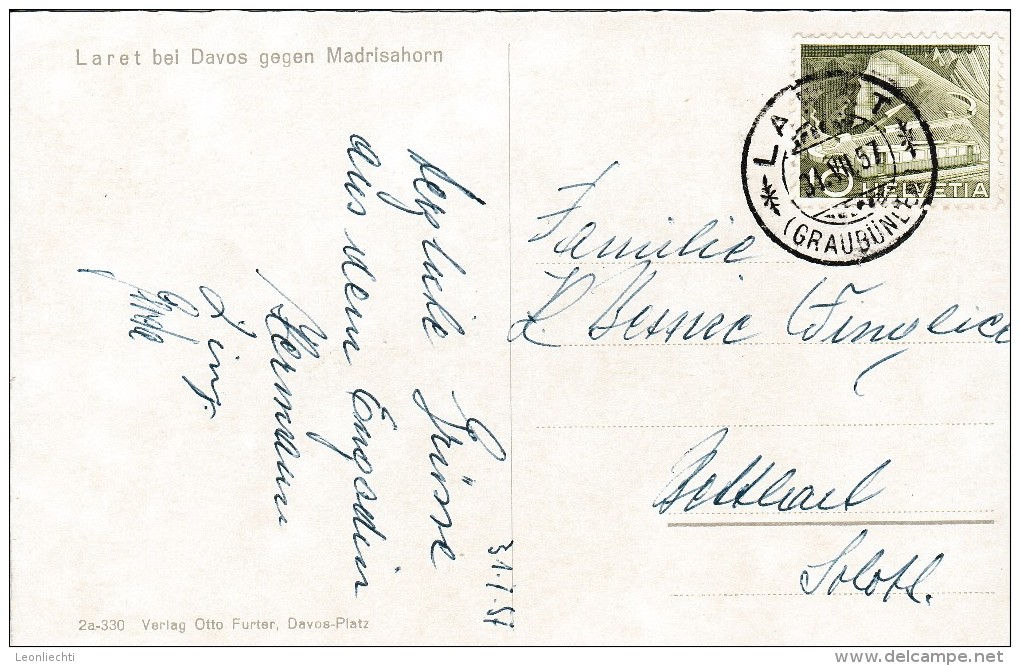 Laret bei Davos gegen Madrisahorn
LARET
31.VII.57
(GRAUBÜNDEN)
10 HELVETIA
Familie
R.
Bettlach
Soloth.
31.7.57
Grüsse
aus dem Engadin
Hermann
2a-330 Verlag Otto Furter, Davos-Platz
Leonliechti
www.delcampe.net